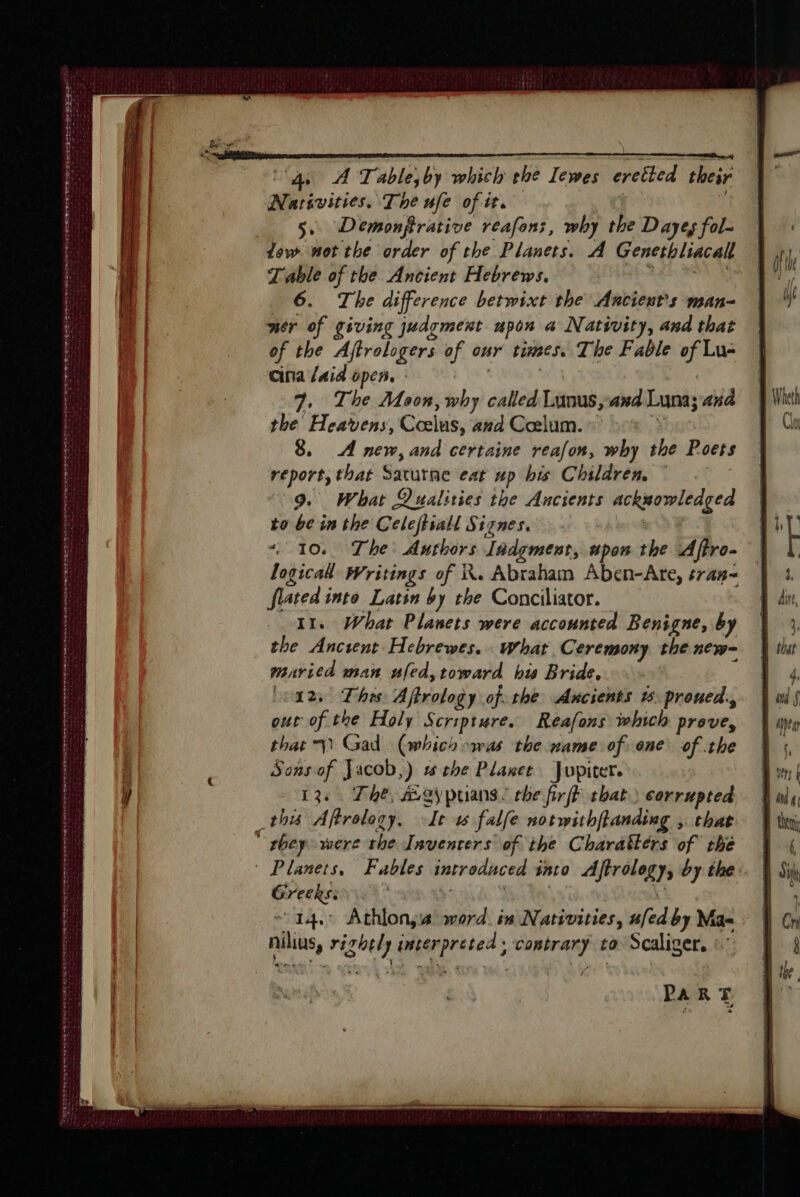 4. A Table, by which the Iewes erected their
Nativities. The uſe of it.
5. Demonſtrative reaſons, why the Dayes fol-
low not the order of the Planets. A Genethliacall
Table of the Ancient Hebrews.
6. The difference betwixt the Ancient's man-
ner of giving judgment upon a Nativity, and that
of the Aſtrologers of our times. The Fable of Lu-
cina laid open.
7. The Moon, why called Lunus, and Luna; and
the Heavens, Cœlus, and Cœlum.
8. A new, and certaine reaſon, why the Poets
report, that Saturne eat up his Children.
9. What Qualities the Ancients acknowledged
to be in the Celeſtiall Signes.
10. The Authors Iudgment, upon the Aſtro-
logicall Writings of R. Abraham Aben-Are, tran-
ſlated into Latin by the Conciliator.
11. What Planets were accounted Benigne, by
the Ancient Hebrewes. What Ceremony the new-
maried man uſed, toward his Bride.
12. This Aſtrology of the Ancients is proued,
out of the Holy Scripture. Reaſons which prove,
that גד Gad (which was the name of one of the
Sons of Jacob,) is the Planet Jupiter.
13. The Ægyptians the firſt that corrupted
this Aſtrology. It is falſe notwithſtanding, that
they were the Inventers of the Characters of the
Planets. Fables introduced into Aſtrology, by the
Greeks.
14. Athlon, a word in Nativities, uſed by Ma-
nilius, rightly interpreted; contrary to Scaliger.
PART
of the
Wheth
that
and
the